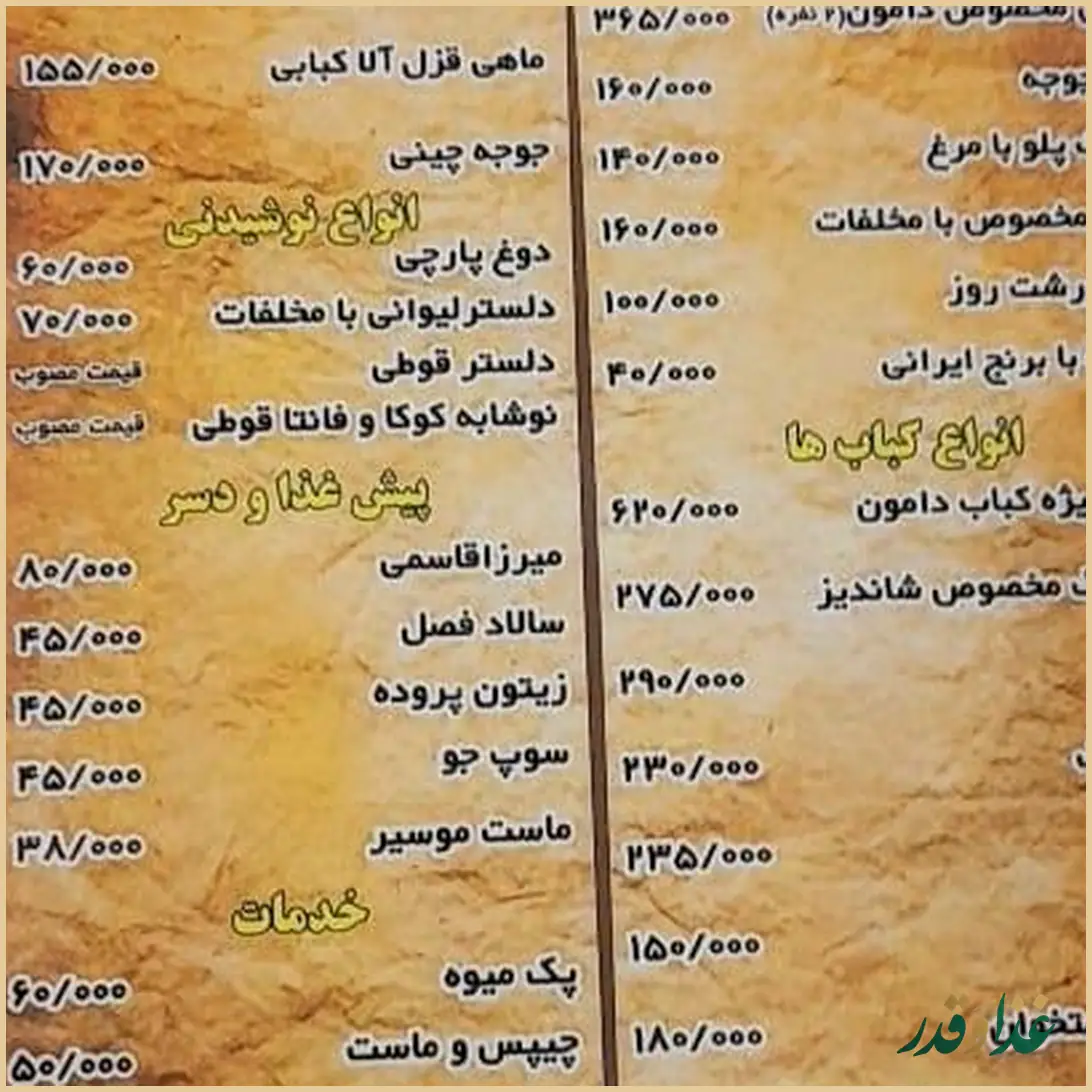 مخصوص دامون (۲ نفره) ۳۶۵/۰۰۰
۱۶۰/۰۰۰
پلو با مرغ ۱۴۰/۰۰۰
مخصوص با مخلفات ۱۶۰/۰۰۰
روز ۱۰۰/۰۰۰
با برنج ایرانی ۴۰/۰۰۰
انواع کباب ها
کباب دامون ۶۲۰/۰۰۰
مخصوص شاندیز ۲۷۵/۰۰۰
۲۹۰/۰۰۰
۲۳۰/۰۰۰
۲۳۵/۰۰۰
۱۵۰/۰۰۰
۱۸۰/۰۰۰
ماهی قزل آلا کبابی ۱۵۵/۰۰۰
جوجه چینی ۱۷۰/۰۰۰
انواع نوشیدنی
دوغ پارچی ۶۰/۰۰۰
دلستر لیوانی با مخلفات ۷۰/۰۰۰
دلستر قوطی قیمت مصوب
نوشابه کوکا و فانتا قوطی قیمت مصوب
پیش غذا و دسر
میرزاقاسمی ۸۰/۰۰۰
سالاد فصل ۴۵/۰۰۰
زیتون پروده ۴۵/۰۰۰
سوپ جو ۴۵/۰۰۰
ماست موسیر ۳۸/۰۰۰
خدمات
پک میوه ۶۰/۰۰۰
چیپس و ماست ۵۰/۰۰۰
غذا قدر